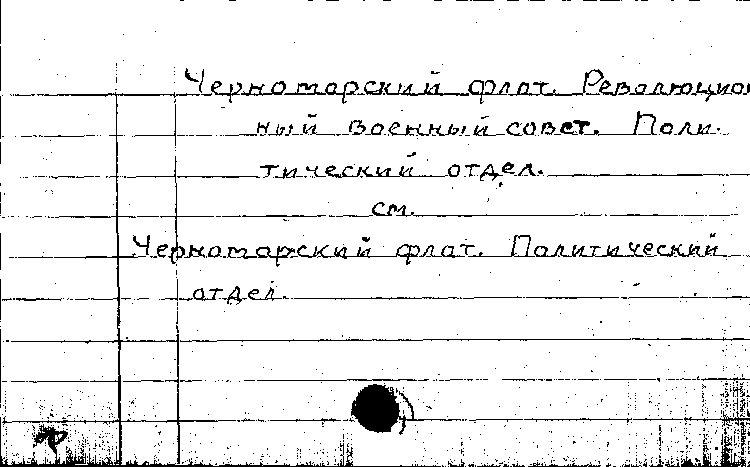 Черноморский флот. Революцион
ный военный совет. Поли-
тический отдел.
см.
Черноморский флот. Политический
отдел.